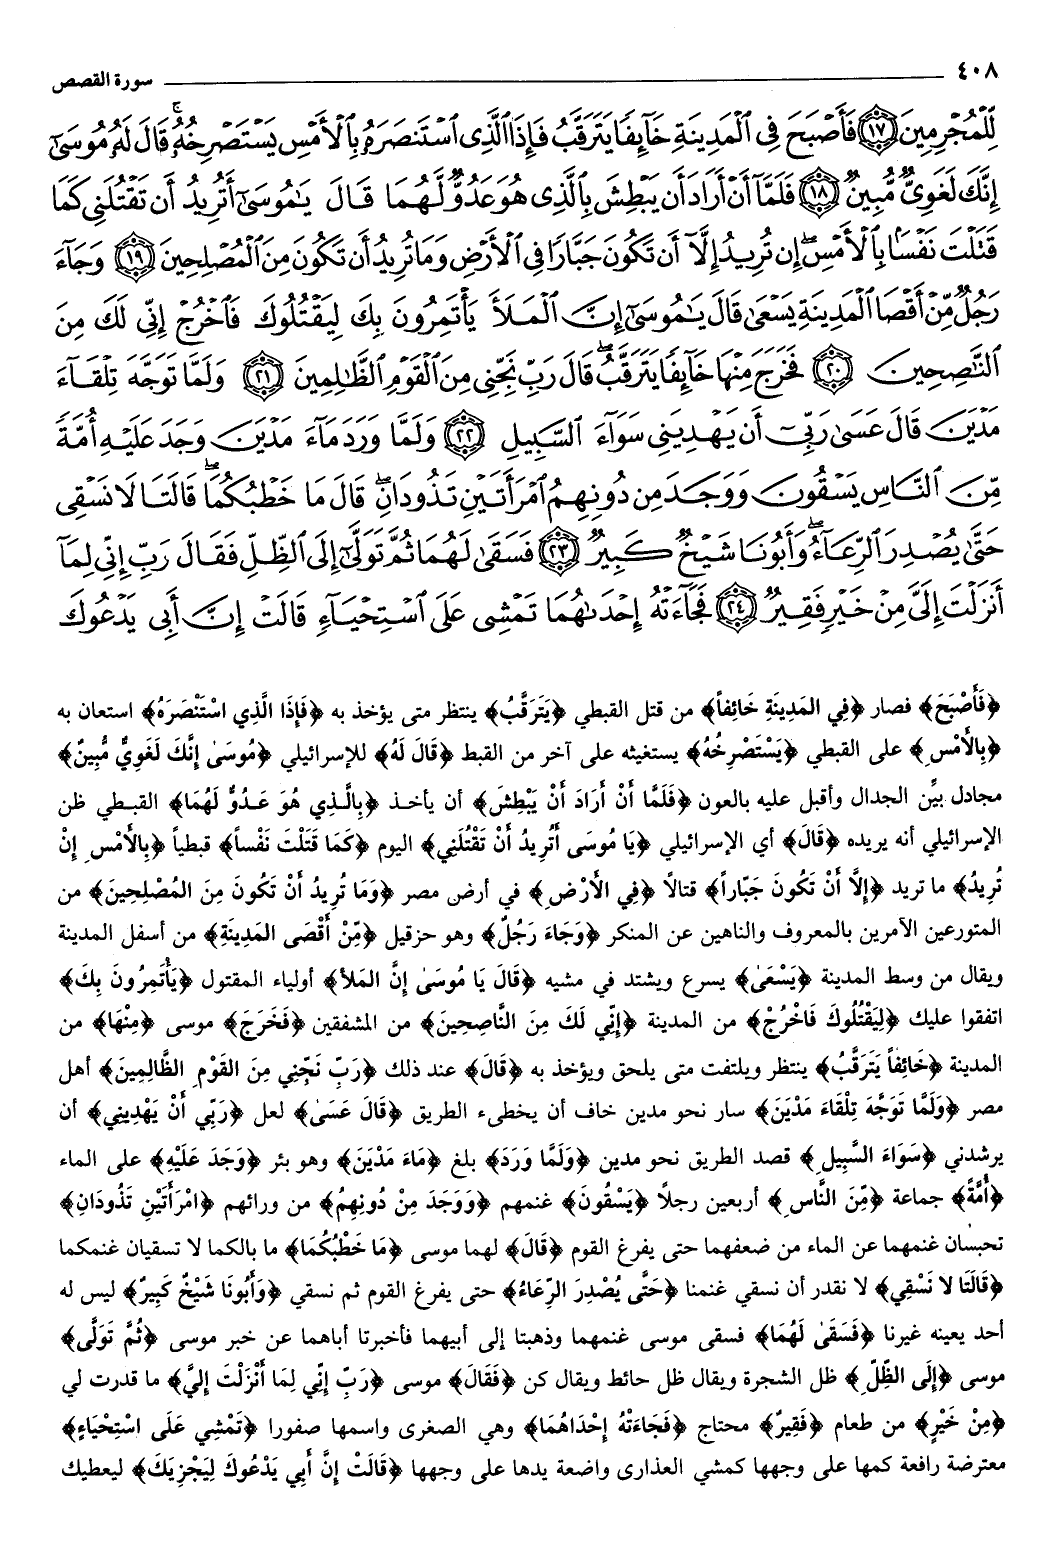 ٤٠٨ سورة القصص
لِّلْمُجْرِمِينَ ﴿١٧﴾ فَأَصْبَحَ فِي ٱلْمَدِينَةِ خَآئِفًا يَتَرَقَّبُ فَإِذَا ٱلَّذِي ٱسْتَنصَرَهُۥ بِٱلْأَمْسِ يَسْتَصْرِخُهُۥ ۚ قَالَ لَهُۥ مُوسَىٰٓ
إِنَّكَ لَغَوِيٌّ مُّبِينٌ ﴿١٨﴾ فَلَمَّآ أَنْ أَرَادَ أَن يَبْطِشَ بِٱلَّذِي هُوَ عَدُوٌّ لَّهُمَا قَالَ يَٰمُوسَىٰٓ أَتُرِيدُ أَن تَقْتُلَنِي كَمَا
قَتَلْتَ نَفْسًۢا بِٱلْأَمْسِ ۖ إِن تُرِيدُ إِلَّآ أَن تَكُونَ جَبَّارًا فِي ٱلْأَرْضِ وَمَا تُرِيدُ أَن تَكُونَ مِنَ ٱلْمُصْلِحِينَ ﴿١٩﴾ وَجَآءَ
رَجُلٌ مِّنْ أَقْصَا ٱلْمَدِينَةِ يَسْعَىٰ قَالَ يَٰمُوسَىٰٓ إِنَّ ٱلْمَلَأَ يَأْتَمِرُونَ بِكَ لِيَقْتُلُوكَ فَٱخْرُجْ إِنِّي لَكَ مِنَ
ٱلنَّٰصِحِينَ ﴿٢٠﴾ فَخَرَجَ مِنْهَا خَآئِفًا يَتَرَقَّبُ ۖ قَالَ رَبِّ نَجِّنِي مِنَ ٱلْقَوْمِ ٱلظَّٰلِمِينَ ﴿٢١﴾ وَلَمَّا تَوَجَّهَ تِلْقَآءَ
مَدْيَنَ قَالَ عَسَىٰ رَبِّيٓ أَن يَهْدِيَنِي سَوَآءَ ٱلسَّبِيلِ ﴿٢٢﴾ وَلَمَّا وَرَدَ مَآءَ مَدْيَنَ وَجَدَ عَلَيْهِ أُمَّةً
مِّنَ ٱلنَّاسِ يَسْقُونَ وَوَجَدَ مِن دُونِهِمُ ٱمْرَأَتَيْنِ تَذُودَانِ ۖ قَالَ مَا خَطْبُكُمَا ۖ قَالَتَا لَا نَسْقِي
حَتَّىٰ يُصْدِرَ ٱلرِّعَآءُ ۖ وَأَبُونَا شَيْخٌ كَبِيرٌ ﴿٢٣﴾ فَسَقَىٰ لَهُمَا ثُمَّ تَوَلَّىٰٓ إِلَى ٱلظِّلِّ فَقَالَ رَبِّ إِنِّي لِمَآ
أَنزَلْتَ إِلَيَّ مِنْ خَيْرٍ فَقِيرٌ ﴿٢٤﴾ فَجَآءَتْهُ إِحْدَىٰهُمَا تَمْشِي عَلَى ٱسْتِحْيَآءٍ قَالَتْ إِنَّ أَبِي يَدْعُوكَ
﴿فَأَصْبَحَ﴾ فصار ﴿فِي المَدِينَةِ خَائِفاً﴾ من قتل القبطي ﴿يَتَرَقَّبُ﴾ ينتظر متى يؤخذ به ﴿فَإِذَا الَّذِي اسْتَنْصَرَهُ﴾ استعان به
﴿بِالأَمْسِ﴾ على القبطي ﴿يَسْتَصْرِخُهُ﴾ يستغيثه على آخر من القبط ﴿قَالَ لَهُ﴾ للإسرائيلي ﴿مُوسَىٰ إِنَّكَ لَغَوِيٌّ مُّبِينٌ﴾
مجادل بيِّن الجدال وأقبل عليه بالعون ﴿فَلَمَّا أَنْ أَرَادَ أَنْ يَبْطِشَ﴾ أن يأخذ ﴿بِالَّذِي هُوَ عَدُوٌّ لَهُمَا﴾ القبطي ظن
الإسرائيلي أنه يريده ﴿قَالَ﴾ أي الإسرائيلي ﴿يَا مُوسَى أَتُرِيدُ أَنْ تَقْتُلَنِي﴾ اليوم ﴿كَمَا قَتَلْتَ نَفْساً﴾ قبطياً ﴿بِالأَمْسِ إِنْ
تُرِيدُ﴾ ما تريد ﴿إِلَّا أَنْ تَكُونَ جَبَّاراً﴾ قتالاً ﴿فِي الأَرْضِ﴾ في أرض مصر ﴿وَمَا تُرِيدُ أَنْ تَكُونَ مِنَ المُصْلِحِينَ﴾ من
المتورعين الآمرين بالمعروف والناهين عن المنكر ﴿وَجَاءَ رَجُلٌ﴾ وهو حزقيل ﴿مِّنْ أَقْصَى المَدِينَةِ﴾ من أسفل المدينة
ويقال من وسط المدينة ﴿يَسْعَىٰ﴾ يسرع ويشتد في مشيه ﴿قَالَ يَا مُوسَىٰ إِنَّ المَلأَ﴾ أولياء المقتول ﴿يَأْتَمِرُونَ بِكَ﴾
اتفقوا عليك ﴿لِيَقْتُلُوكَ فَاخْرُجْ﴾ من المدينة ﴿إِنِّي لَكَ مِنَ النَّاصِحِينَ﴾ من المشفقين ﴿فَخَرَجَ﴾ موسى ﴿مِنْهَا﴾ من
المدينة ﴿خَائِفاً يَتَرَقَّبُ﴾ ينتظر ويلتفت متى يلحق ويؤخذ به ﴿قَالَ﴾ عند ذلك ﴿رَبِّ نَجِّنِي مِنَ القَوْمِ الظَّالِمِينَ﴾ أهل
مصر ﴿وَلَمَّا تَوَجَّهَ تِلْقَاءَ مَدْيَنَ﴾ سار نحو مدين خاف أن يخطىء الطريق ﴿قَالَ عَسَىٰ﴾ لعل ﴿رَبِّي أَنْ يَهْدِيَنِي﴾ أن
يرشدني ﴿سَوَاءَ السَّبِيلِ﴾ قصد الطريق نحو مدين ﴿وَلَمَّا وَرَدَ﴾ بلغ ﴿مَاءَ مَدْيَنَ﴾ وهو بئر ﴿وَجَدَ عَلَيْهِ﴾ على الماء
﴿أُمَّةً﴾ جماعة ﴿مِّنَ النَّاسِ﴾ أربعين رجلاً ﴿يَسْقُونَ﴾ غنمهم ﴿وَوَجَدَ مِنْ دُونِهِمُ﴾ من ورائهم ﴿امْرَأَتَيْنِ تَذُودَانِ﴾
تحبسان غنمهما عن الماء من ضعفهما حتى يفرغ القوم ﴿قَالَ﴾ لهما موسى ﴿مَا خَطْبُكُمَا﴾ ما بالكما لا تسقيان غنمكما
﴿قَالَتَا لا نَسْقِي﴾ لا نقدر أن نسقي غنمنا ﴿حَتَّى يُصْدِرَ الرِّعَاءُ﴾ حتى يفرغ القوم ثم نسقي ﴿وَأَبُونَا شَيْخٌ كَبِيرٌ﴾ ليس له
أحد يعينه غيرنا ﴿فَسَقَىٰ لَهُمَا﴾ فسقى موسى غنمهما وذهبتا إلى أبيهما فأخبرتا أباهما عن خبر موسى ﴿ثُمَّ تَوَلَّى﴾
موسى ﴿إِلَى الظِّلِّ﴾ ظل الشجرة ويقال ظل حائط ويقال كن ﴿فَقَالَ﴾ موسى ﴿رَبِّ إِنِّي لِمَا أَنْزَلْتَ إِلَيَّ﴾ ما قدرت لي
﴿مِنْ خَيْرٍ﴾ من طعام ﴿فَقِيرٌ﴾ محتاج ﴿فَجَاءَتْهُ إِحْدَاهُمَا﴾ وهي الصغرى واسمها صفورا ﴿تَمْشِي عَلَى اسْتِحْيَاءٍ﴾
معترضة رافعة كمها على وجهها كمشي العذارى واضعة يدها على وجهها ﴿قَالَتْ إِنَّ أَبِي يَدْعُوكَ لِيَجْزِيَكَ﴾ ليعطيك